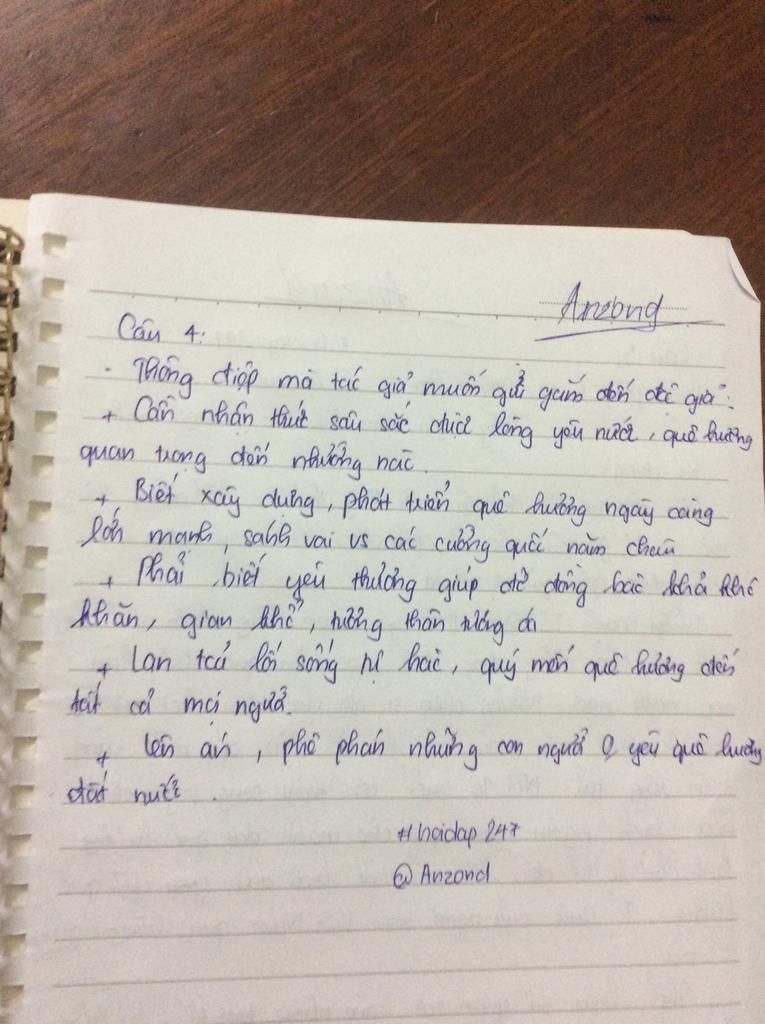 Anzond
Câu 4:
- Thông điệp mà tác giả muốn gửi gắm đến độc giả:
+ Cần nhận thức sâu sắc được lòng yêu nước, quê hương
quan trọng đến nhường nào.
+ Biết xây dựng, phát triển quê hương ngày càng
lớn mạnh, sánh vai vs các cường quốc năm châu
+ Phải biết yêu thương giúp đỡ đồng bào khó
khăn, gian khổ, tương thân tương ái
+ Lan toả lối sống tự hào, quý mến quê hương đến
tất cả mọi người.
+ lên án, phê phán những con người yêu quê hương
đất nước.
#hoidap247
@Anzond